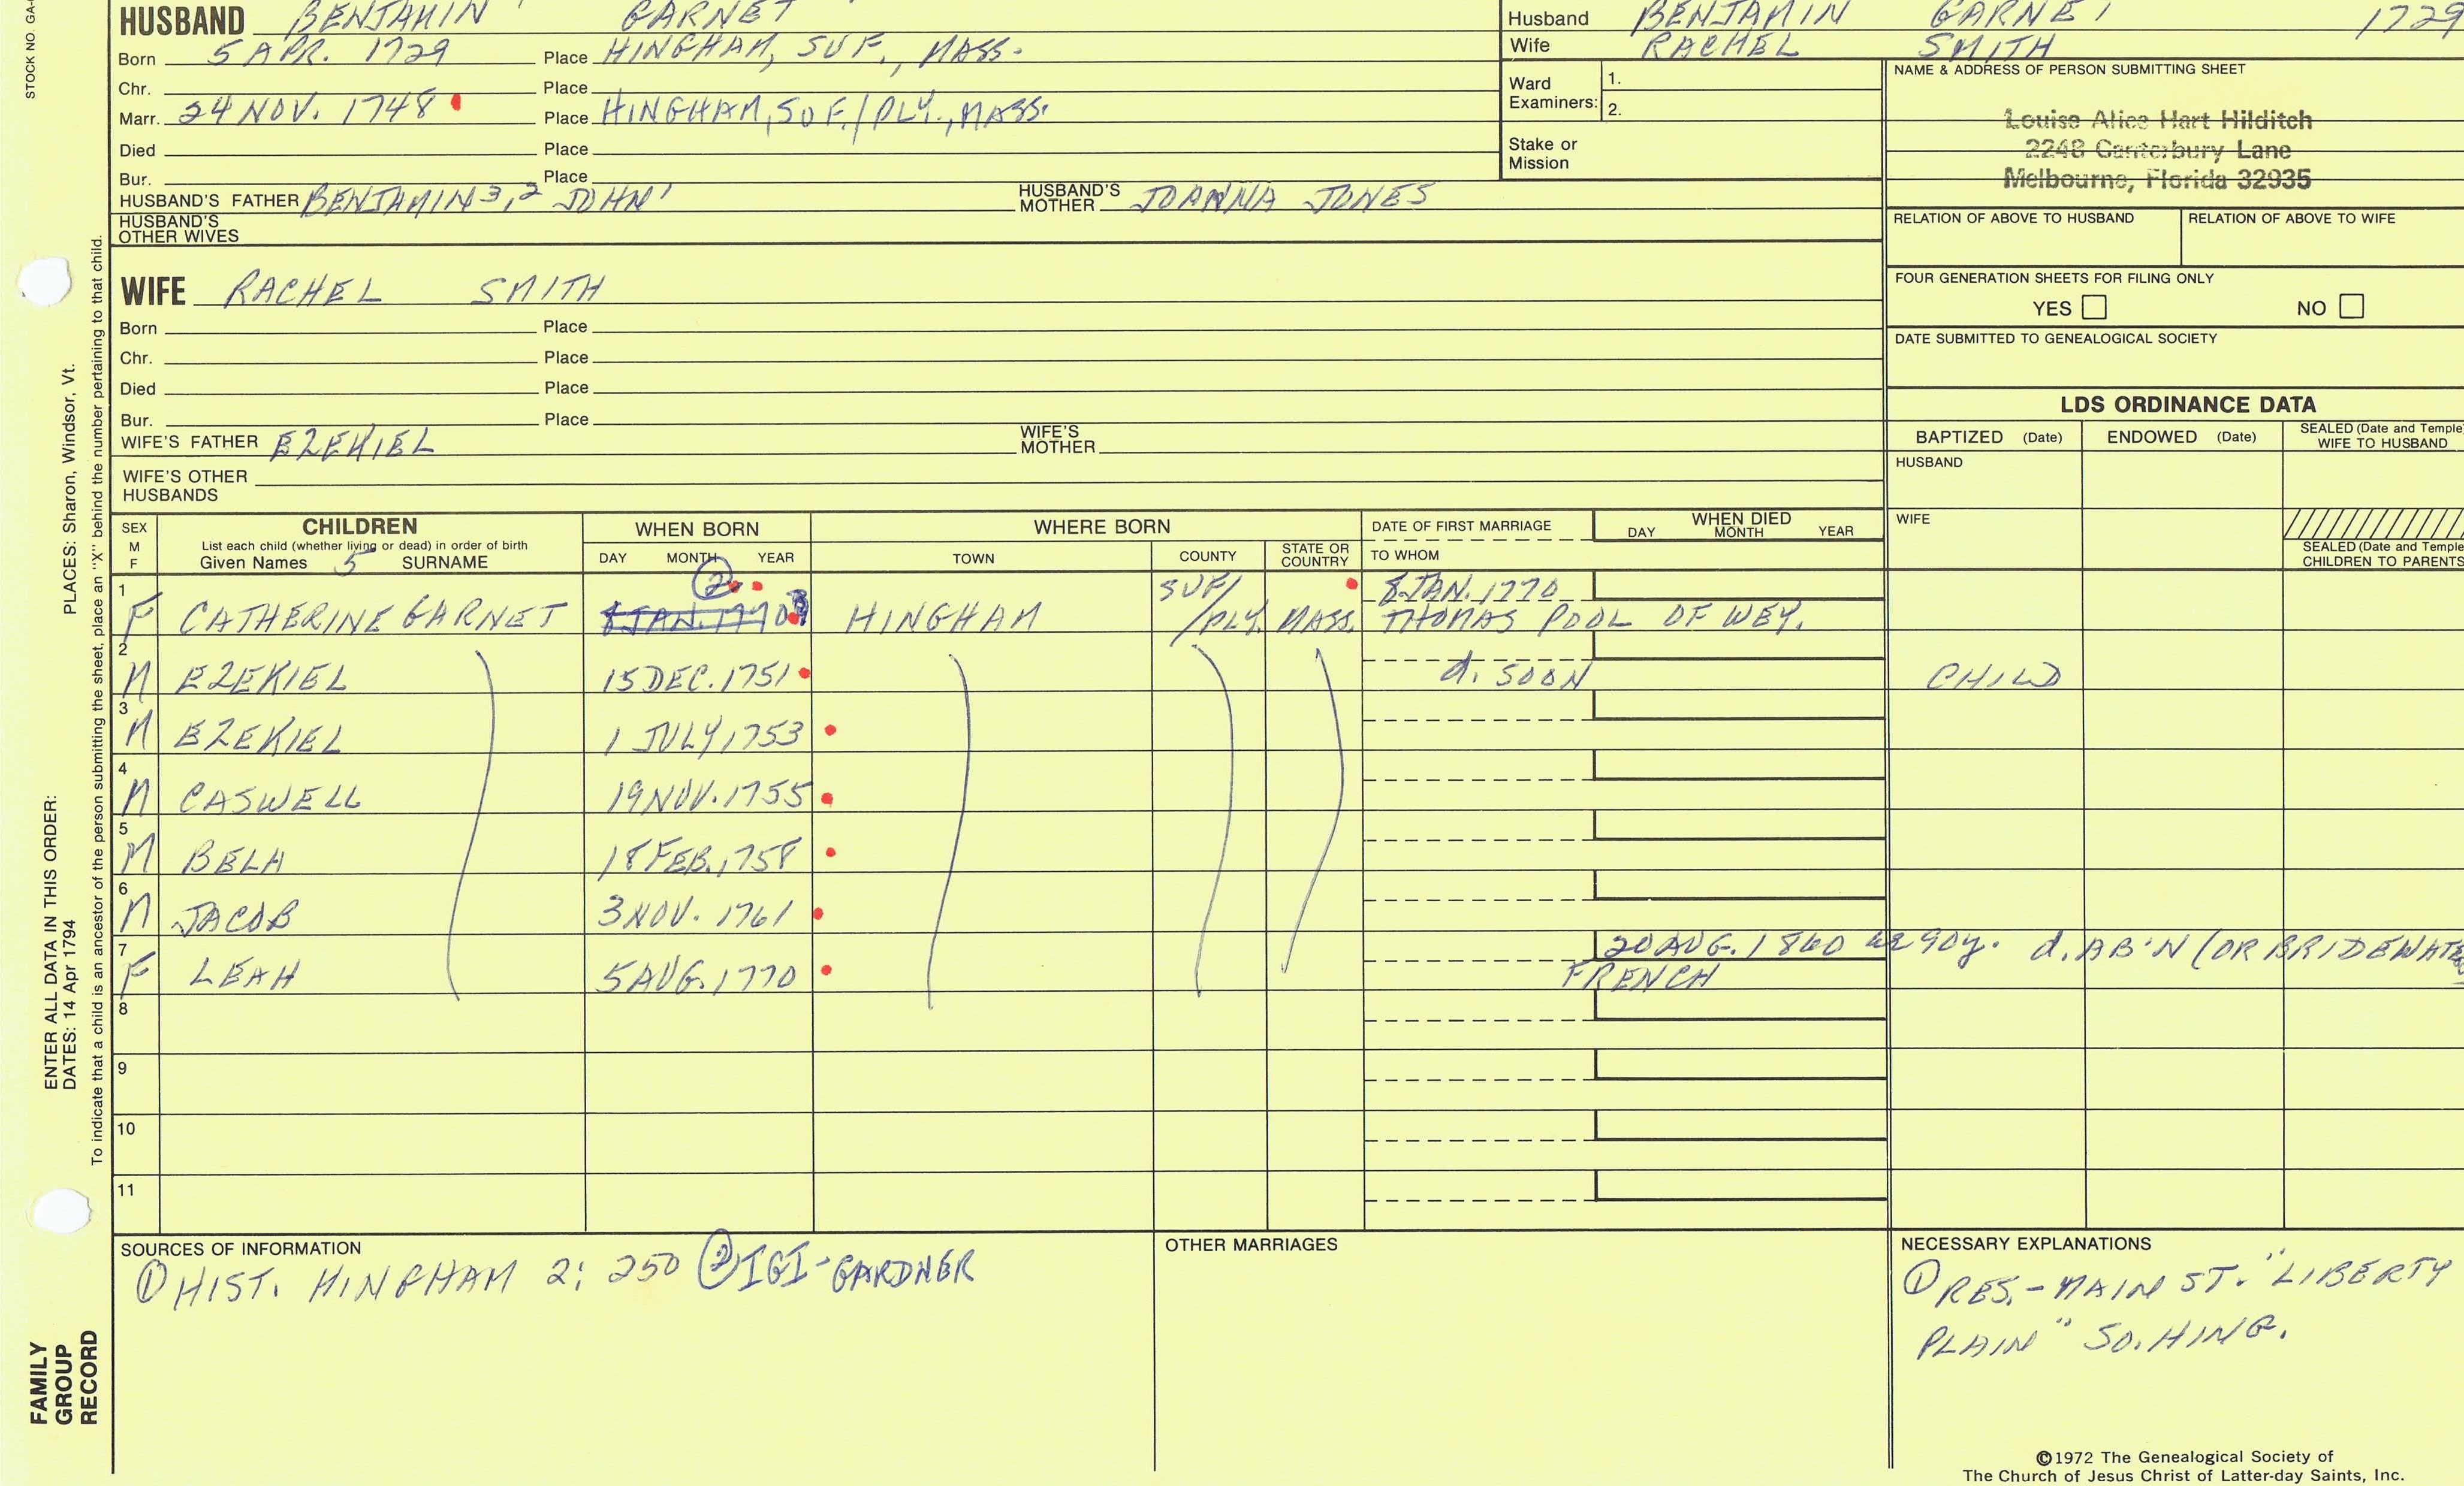 STOCK NO. GA
HUSBAND BENJAMIN GARNET
Born 5 APR. 1729 Place HINGHAM, SUF., MASS.
Chr. Place
Marr. 24 NOV. 1748 Place HINGHAM, SUF./PLY., MASS.
Died Place
Bur. Place
HUSBAND'S FATHER BENJAMIN 3,2 JOHN 1 HUSBAND'S MOTHER JOANNA JONES
HUSBAND'S OTHER WIVES
WIFE RACHEL SMITH
Born Place
Chr. Place
Died Place
Bur. Place
WIFE'S FATHER EZEKIEL WIFE'S MOTHER
WIFE'S OTHER HUSBANDS
Husband BENJAMIN GARNET 1729
Wife RACHEL SMITH
Ward Examiners: 1.
2.
Stake or Mission
NAME & ADDRESS OF PERSON SUBMITTING SHEET
Louise Alice Hart Hilditch
2248 Canterbury Lane
Melbourne, Florida 32935
RELATION OF ABOVE TO HUSBAND RELATION OF ABOVE TO WIFE
FOUR GENERATION SHEETS FOR FILING ONLY
YES NO
DATE SUBMITTED TO GENEALOGICAL SOCIETY
LDS ORDINANCE DATA
BAPTIZED (Date) ENDOWED (Date) SEALED (Date and Temple) WIFE TO HUSBAND
HUSBAND
WIFE
SEALED (Date and Temple) CHILDREN TO PARENTS
SEX M F CHILDREN WHEN BORN WHERE BORN DATE OF FIRST MARRIAGE WHEN DIED
List each child (whether living or dead) in order of birth
Given Names 5 SURNAME DAY MONTH YEAR TOWN COUNTY STATE OR COUNTRY TO WHOM DAY MONTH YEAR
1 F CATHERINE GARNET 2 8 JAN. 1770 HINGHAM SUF/ /PLY. MASS. 8 JAN. 1770
THOMAS POOL OF WEY.
2 M EZEKIEL 15 DEC. 1751 d. SOON CHILD
3 M EZEKIEL 1 JULY, 1753
4 M CASWELL 19 NOV. 1755
5 M BELA 18 FEB. 1758
6 M JACOB 3 NOV. 1761
7 F LEAH 5 AUG. 1770 20 AUG. 1860 90y. d. AB'N (OR BRIDEWATE
FRENCH
8
9
10
11
SOURCES OF INFORMATION
① HIST. HINGHAM 2: 250 ② IGI-GARDNER
OTHER MARRIAGES
NECESSARY EXPLANATIONS
① RES. - MAIN ST. "LIBERTY
PLAIN" SO. HING.
©1972 The Genealogical Society of
The Church of Jesus Christ of Latter-day Saints, Inc.
ENTER ALL DATA IN THIS ORDER:
DATES: 14 Apr 1794 PLACES: Sharon, Windsor, Vt.
To indicate that a child is an ancestor of the person submitting the sheet, place an "X" behind the number pertaining to that child.
FAMILY
GROUP
RECORD